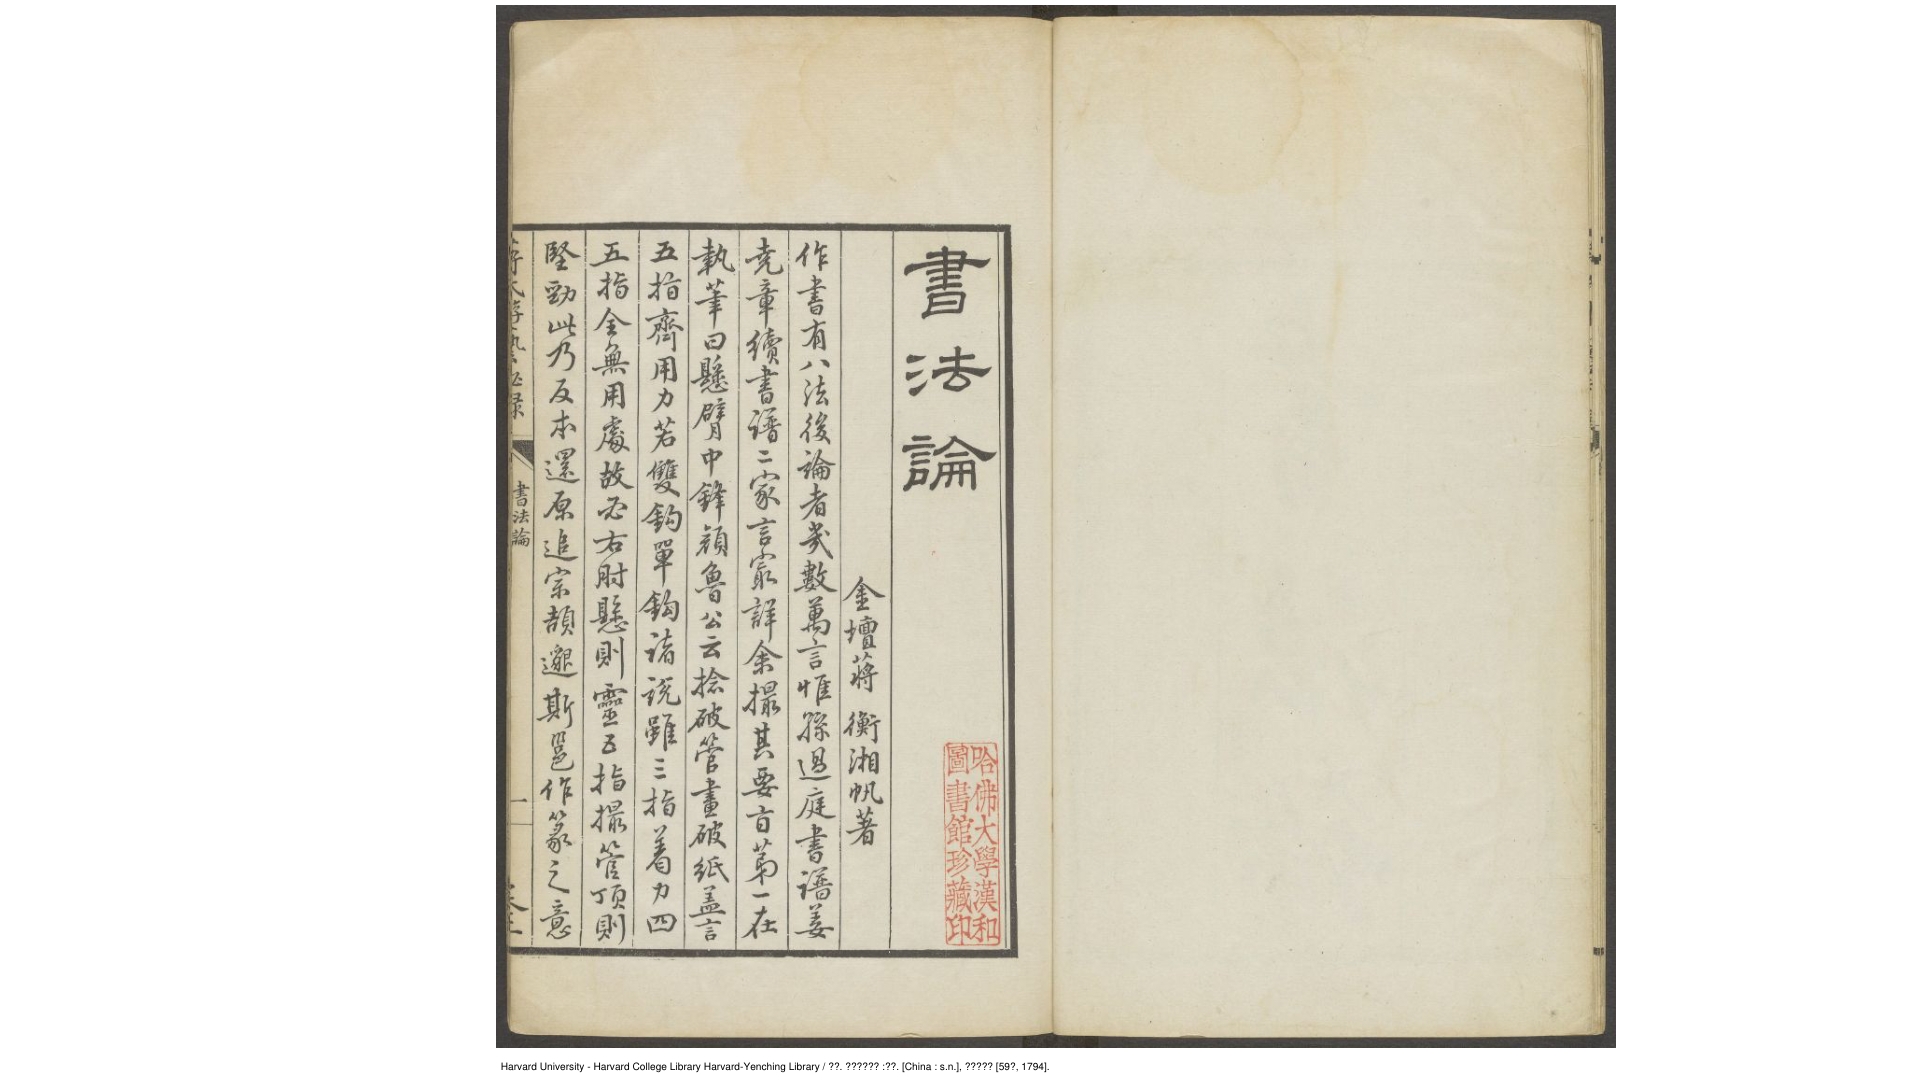 書法論
金壇蔣 衡湘帆著
作書有八法後論者幾數萬言惟孫過庭書譜姜
堯章續書譜二家言宻詳余撮其要旨苐一在
執筆曰懸臂中鋒顔魯公云捻破管畫破紙盖言
五指齊用力若雙鈎單鈎諸說雖三指着力四
五指全無用處故必右肘懸則靈五指撮管頂則
堅勁此乃反本還原追宗頡邈斯邕作篆之意
書法論
一
哈佛大學漢和
圖書館珍藏印
Harvard University - Harvard College Library Harvard-Yenching Library / ??. ?????? :??. [China : s.n.], ????? [59?, 1794].